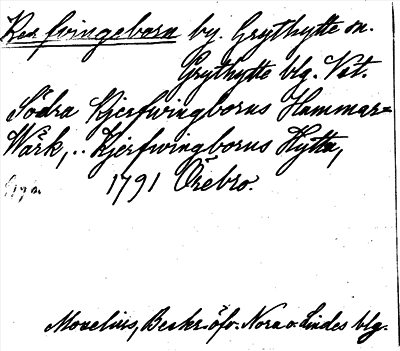 Kes fvingeborn by. Grythytte sn.
Grythytte blg. Vst.
Södra Kjerfwingborns Hammar=
Wärk, .. Kjerfwingborns Hytta,
1791 Örebro.
Morelius, Beskr. öfv. Nora o. Lindes blg.